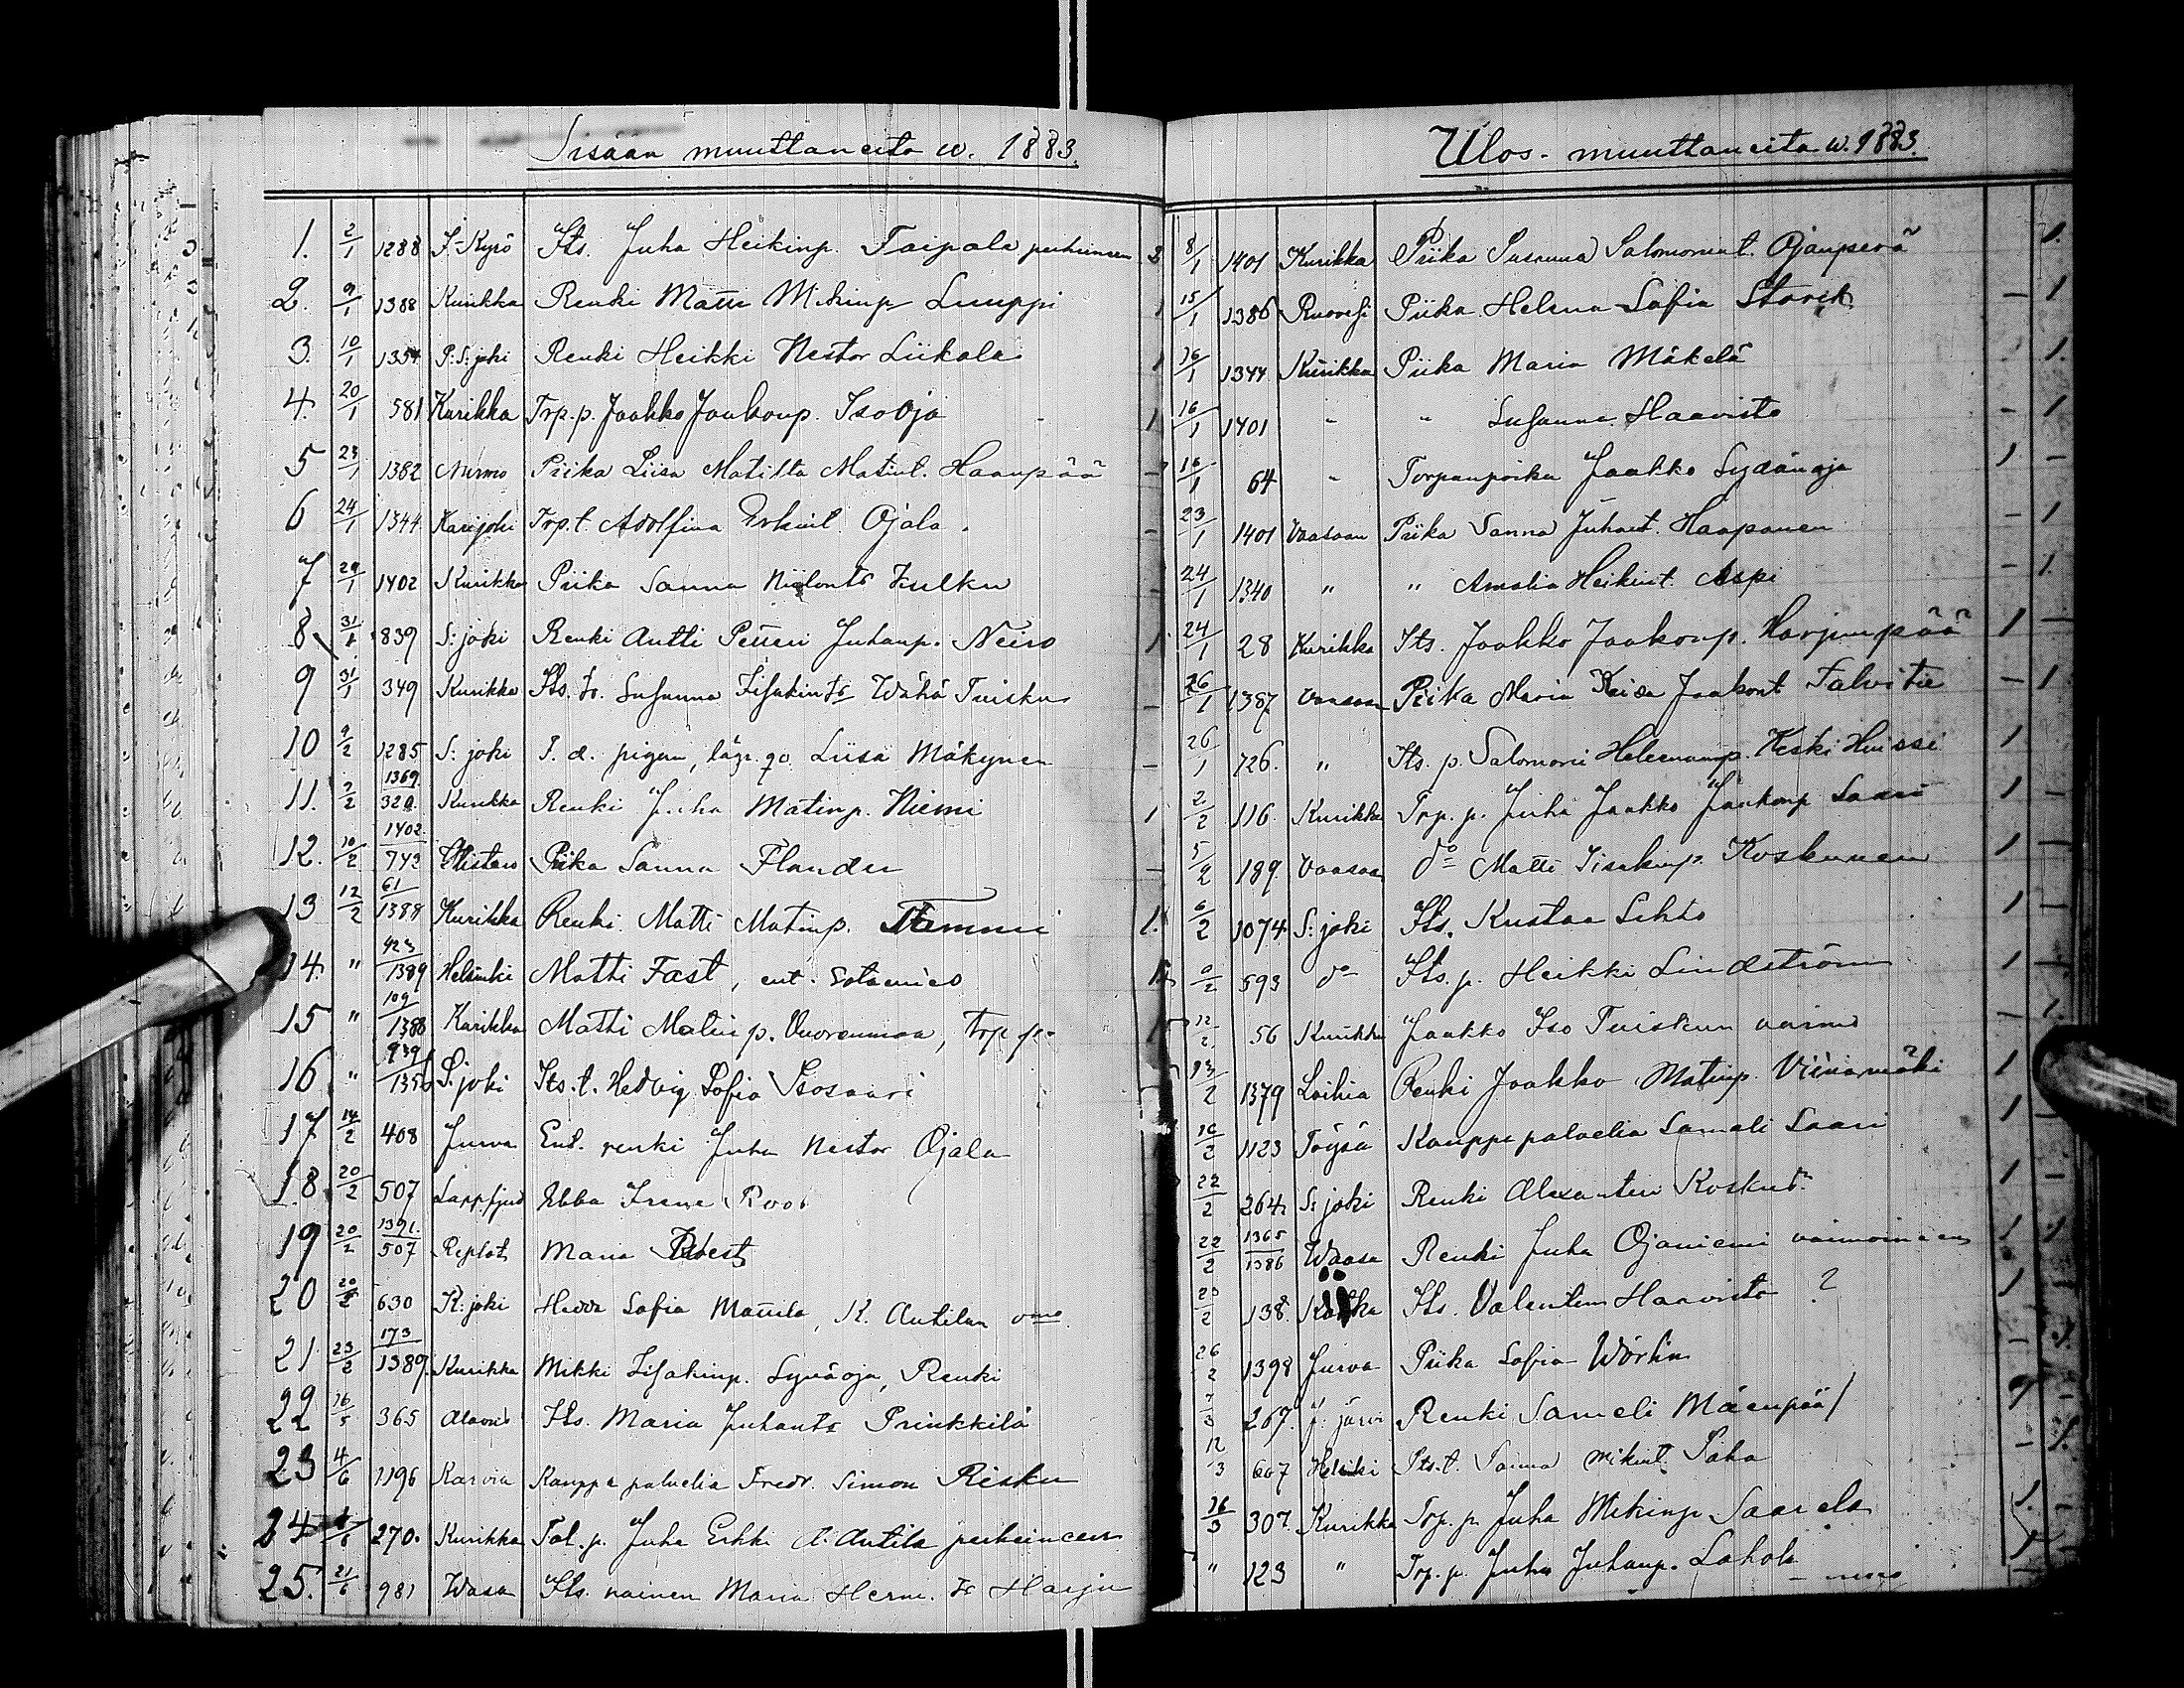 Sisään muuttaneita w. 1883.
1. 2/1 1288 I-Kyrö Its. Juha Heikinp. Taipale perheineen 3
2. 9/1 1388 Kurikka Renki Matti Mikinp Luuppi 1
3. 10/1 1354 P.S:joki Renki Heikki Nestor Liikala 1
4. 20/1 581 Kurikka Trp.p. Jaakko Jaakonp. Isooja 1
5 23/1 1382 Nurmo Piika Liisa Matilta Matint. Haanpää -
6 24/1 1344 Karijoki Trp.t. Adolfina Erkint Ojala. -
7 29/1 1402 Kurikka Piika Sanna Niilontr Kulku -
8 31/1 839 S:joki Renki Antti Petteri Juhanp. Neiro 1
9 31/1 349 Kurikka Its. tr. Susanna Iisakintr Wähä Tuisku -
10 9/2 1285 S:joki F. d. pigan, lägr. qv. Liisa Mäkynen -
11. 9/2 1369/320 Kurikka Renki Juha Matinp. Niemi 1
12. 10/2 1402/742 Ylistaro Piika Sanna Flander -
13 12/2 61/1388 Kurikka Renki Matti Matinp. Tammi 1.
14. " 423/1389 Helsinki Matti Fast, ent. sotamies 1
15 " 109/1388 Kurikka Matti Matinp. Vuorenmaa, Trp. p. 1
16 " 939/1350 S:joki Its.t. Hedvig Sofia Isosaari
17 14/2 408 Jurva Ent. renki Juha Nestor Ojala
18 20/2 507 Lappfjärd Ebba Irene Roos
19 20/2 1391/507 Replot Maria
20 20/2 630 K:joki Hedda Sofia Mattila, K. Antilan vmo
21 23/2 173/1389 Kurikka Mikki Iisakinp. Syväoja, Renki
22 16/5 365 Alavus Its. Maria Juhantr Prinkkilä
23 4/6 1196 Karvia Kauppapalvelia Fredr. Simon Risku
24 6 270. Kurikka Tal. p. Juha Erkki A. Antila perheineen
25. 21/6 981 Wasa Its. nainen Maria Herm. tr Harju
Ulos-muuttaneita w. 1883.
8/1 1401 Kurikka Piika Susanna Salomonint. Ojanperä 1.
15/1 1386 Ruovesi Piika Helena Sofia Storck - 1
16/1 1344 Kurikka Piika Maria Mäkelä 1.
16/1 1401 " " Susanna Haavisto - 1
16/1 64 " Torpanpoika Jaakko Sydänoja 1 -
23/1 1401 Vaasaan Piika Sanna Juhant. Haapanen - 1
24/1 1340 " " Amalia Heikint. Aspi - 1.
24/1 28 Kurikka Its. Jaakko Jaakonp. Harjunpää 1 -
26/1 1387 Vaasaan Piika Maria Kaisa Jaakont Talvitie - 1
26/1 726. " Its. p. Salomoni Heleenanp. Keski Huissi 1 -
2/2 116. Kurikka Trp. p. Juha Jaakko Jaakonp Saari 1 -
5/2 189 Vaasaan do Matti Iisakinp. Koskunen 1 -
6/2 1074 S:joki Its. Kustaa Sihto 1 -
2 593 do Its. p. Heikki Lindström 1 -
12/2 56 Kurikka Jaakko Iso Tuiskun vaimo - 1.
13/2 1379 Laihia Renki Jaakko Matinp. Viinamäki 1
16/2 1123 Töysä Kauppapalvelia Sameli Saari 1 -
22/2 264 S:joki Renki Alexanteri 1 -
22/2 1365/1386 Waasa Renki Juha Ojaniemi vaimoineen 1 1.
23/2 138. Its. Valentin Haavisto ? 1
26/2 1398 Jurva Piika Sofia Wörlin - 1.
7/3 267. J:järvi Renki Sameli Mäenpää 1 -
12/3 607 Helsinki Its.t. Sanna Mikint. Paha - 1.
16/3 307. Kurikka Trp. p. Juha Mikinp Saarela 1.
" 123 " Trp. p. Juha Juhanp. Lahola 1